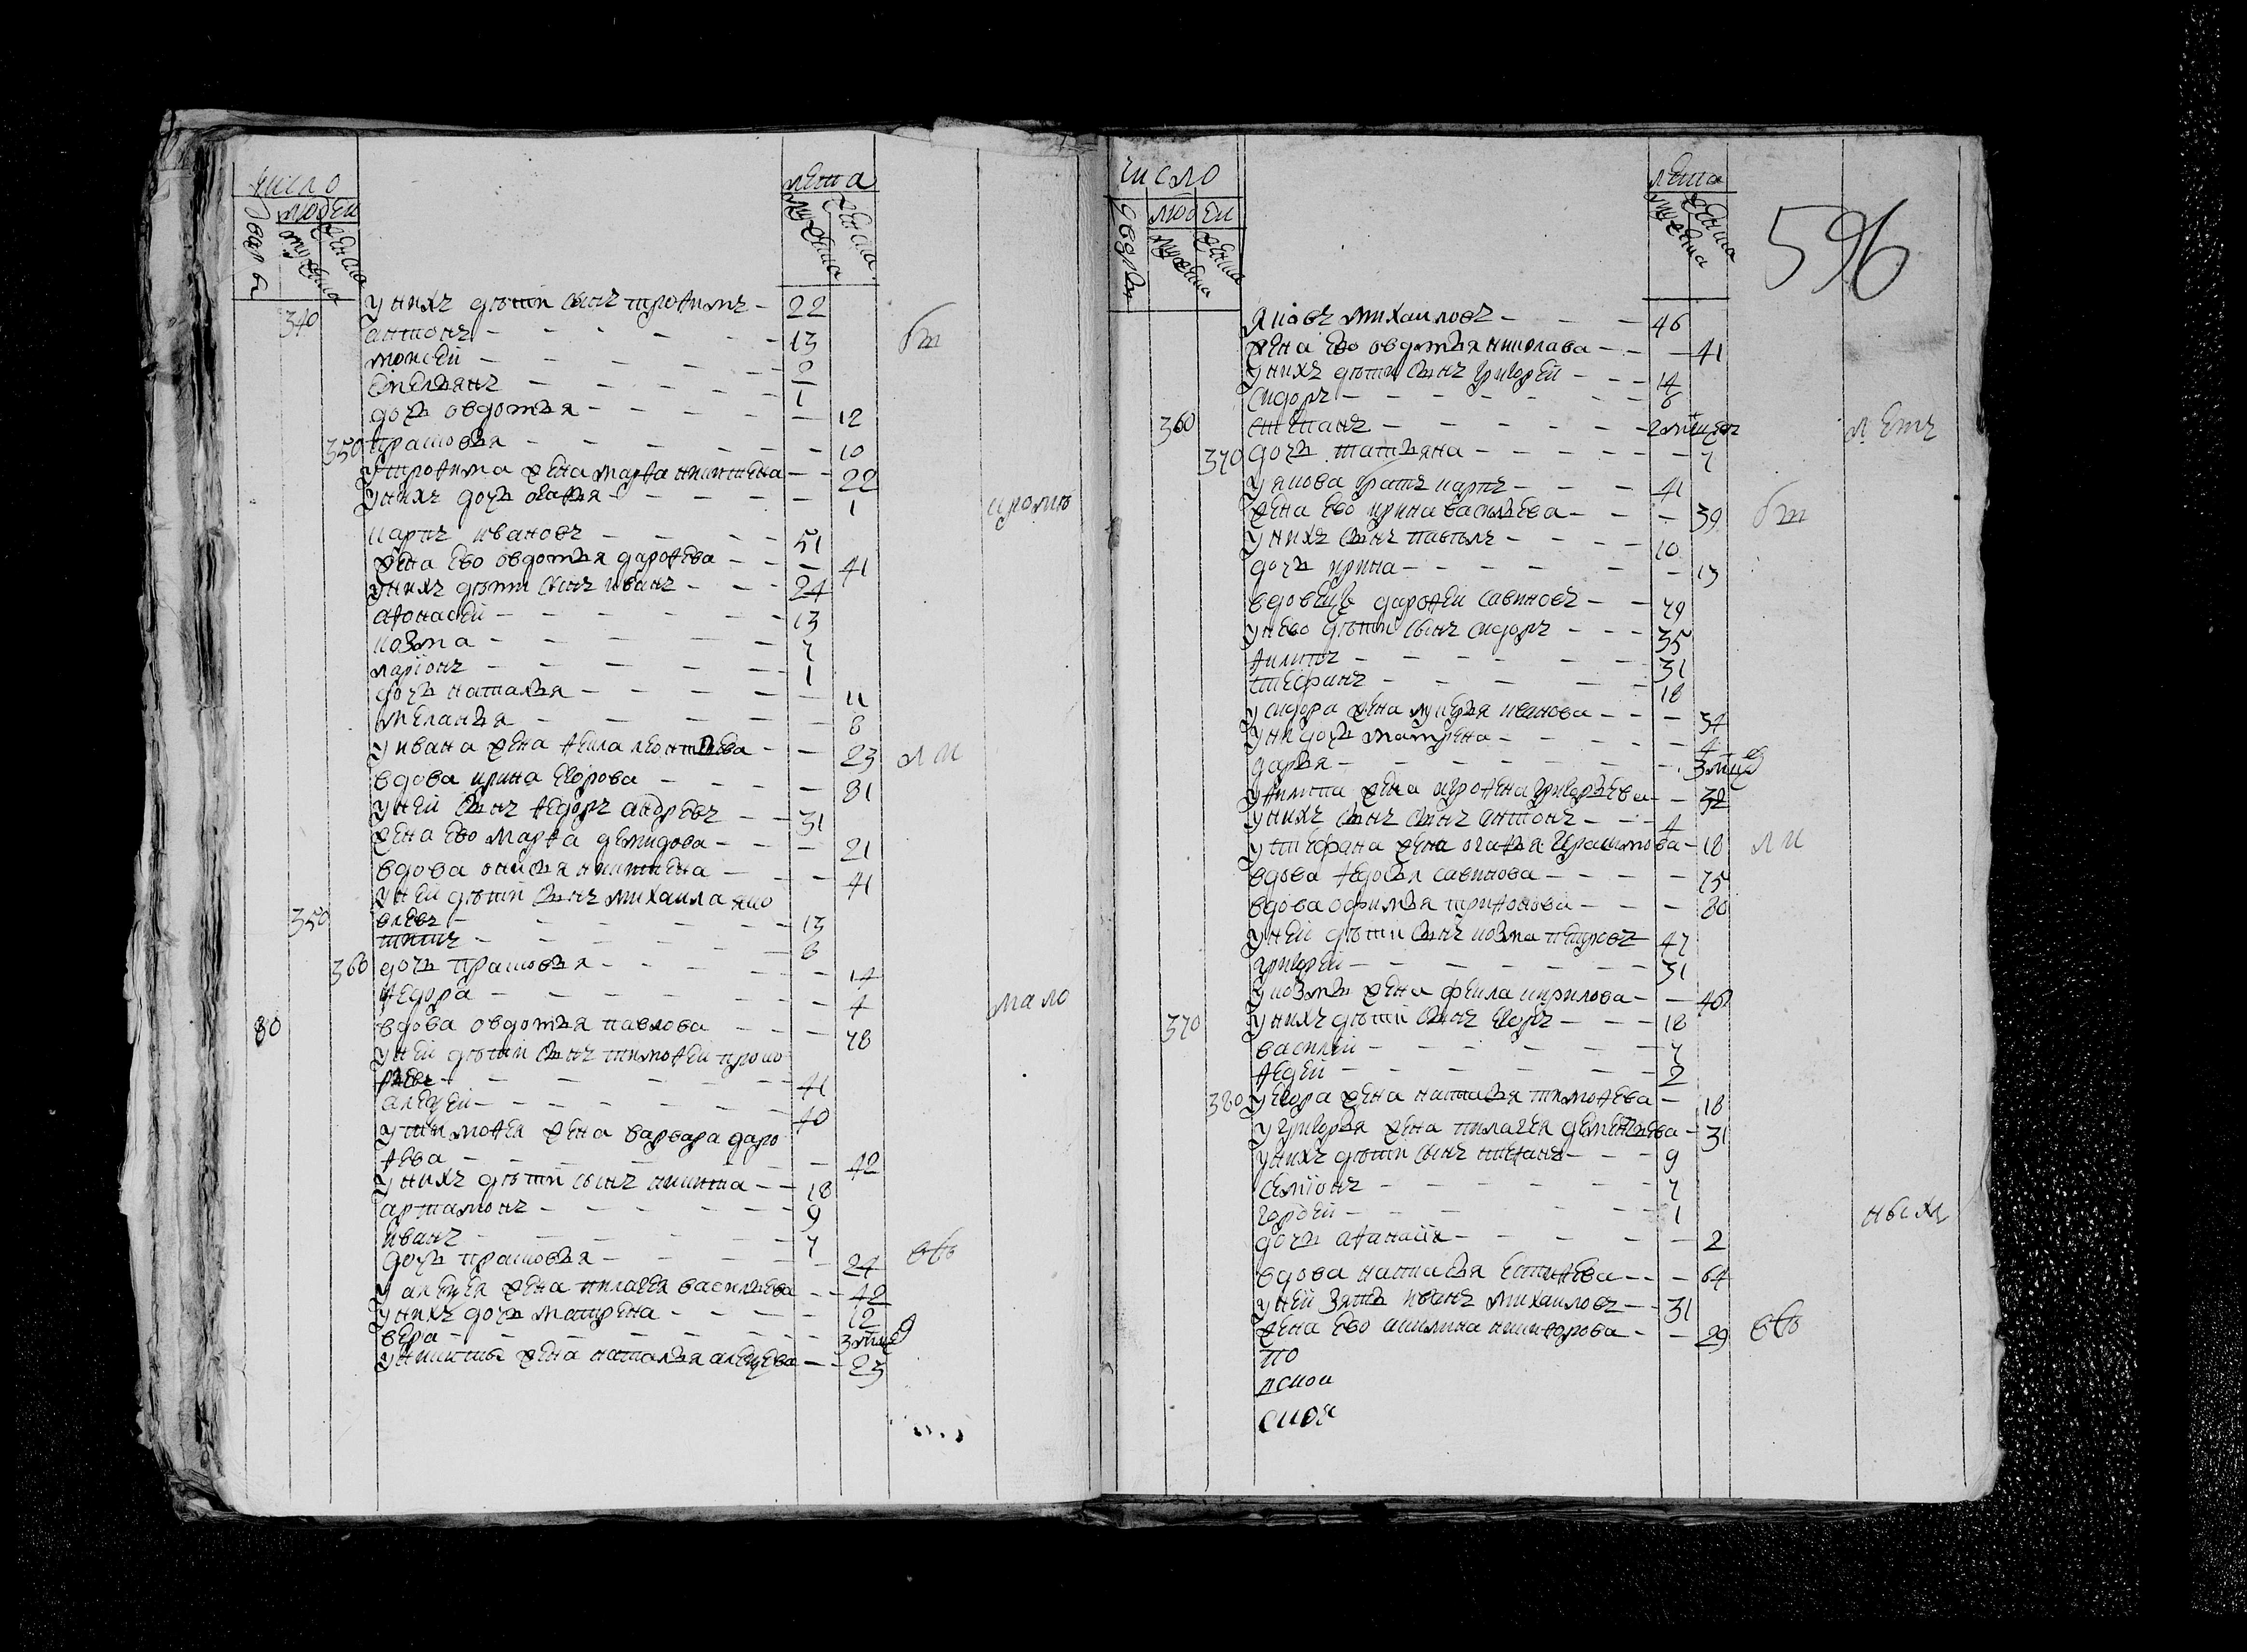 число
лета
дворов
людей
мужеска
женска
мужеска
женска
у них дети сын трофим 22
340 антон 13
моисей
емельян 1
дочь овдотья 12
350 прасковья 10
у трофима жена марфа никитена 22
у них дочь огафья 1
кроме
карп иванов 51
жена ево овдотья дарофева 41
у них дети сын иван 24
афонасей 13
козма 7
ларион 1
дочь наталья 11
меланья 8
у ивана жена фекла леонтьева 23
ли
вдова ирина егорова 81
у ней сын федор андреев 31
жена ево марфа демидова 21
вдова никитена 41
у ней дети сын михаила яко
350 влев 13
тит 8
360 дочь прасковья 14
федора 4
мало
80 вдова овдотья павлова 78
у ней дети сын тимофей проко
фьев 41
алексей 40
у тимофея жена варвара даро
фева 42
у них дети сын никита 18
артамон 9
иван 7
дочь прасковья 24
у алексея жена пилагея васильева 42
у них дочь матрена 12
вера 3 мец
у никиты жена наталья алексеева 23
число
лета
дворов
людей
мужеска
женска
мужеска
женска
596
яков михаилов 46
жена ево овдотья николава 41
у них дети сын григорей 14
сидор 6
360 степан 2 месецов
летъ
370 дочь татьяна 7
у якова брат карп 41
жена ево ирина васильева 39
у них сын павел 10
дочь ирина 13
вдовец дарофей савинов 79
у нево дети сын сидор 35
филип 31
стефан 18
у сидора жена лукерья иванова 34
у ни дочь матрена 4
дарья 3 мец
у филипа жена огрофена григорьева 32
у них сын сын антон 4
у стефана жена огафья 18
ли
вдова федосья савинова 75
вдова офимья трифонова 80
у ней дети сын козма петров 47
григорей 31
у козмы жена фекла кирилова 46
370 у них дети сын егор 18
василей 7
федей 2
380 у егора жена наталья тимофева 18
у григорья жена пилагея дементьева 31
у них дети сын степан 9
семион 7
гордей 1
ныхъ
дочь афанасия 2
вдова наталья 64
у ней зять иван михаилов 31
жена ево акилина никифорова 29
по
пском
ския